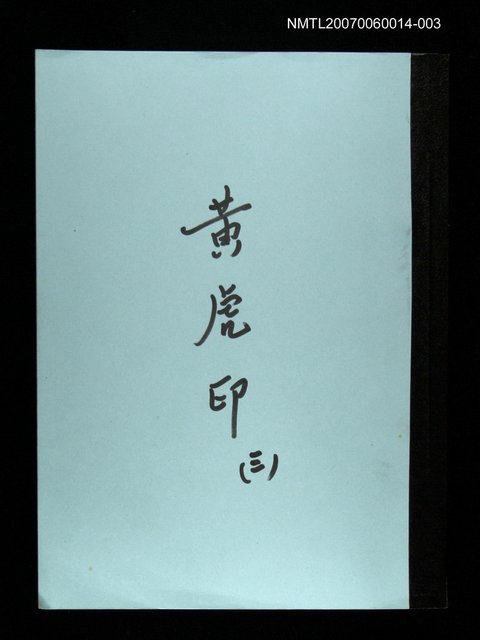 NMTL20070060014-003
黃虎印
(三)